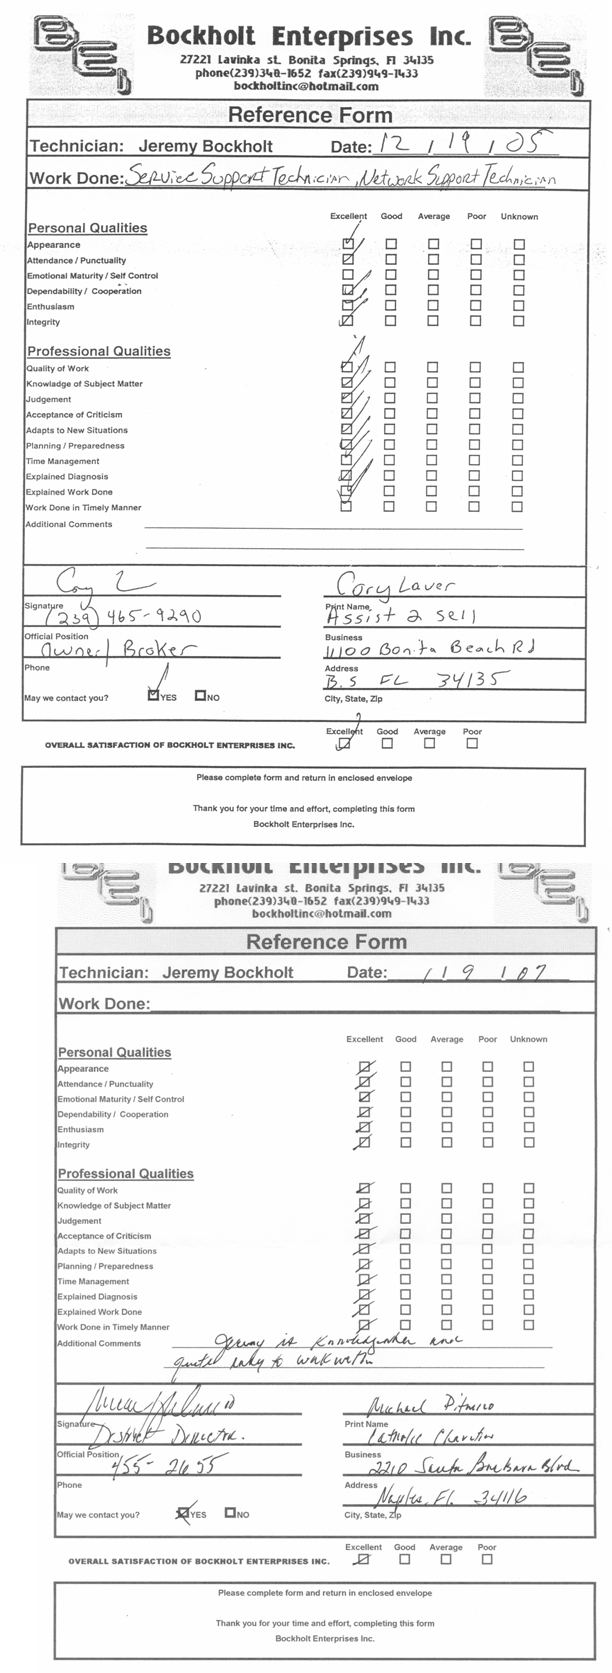 BE,I Bockholt Enterprises Inc. BE,I
27221 Lavinka st. Bonita Springs, Fl 34135
phone(239)340-1652 fax(239)949-1433
bockholtinc@hotmail.com
Reference Form
Technician: Jeremy Bockholt Date: 12 / 19 / 05
Work Done: Service Support Technician, Network Support Technician
Excellent Good Average Poor Unknown
Personal Qualities
Appearance
Attendance / Punctuality
Emotional Maturity / Self Control
Dependability / Cooperation
Enthusiasm
Integrity
Professional Qualities
Quality of Work
Knowladge of Subject Matter
Judgement
Acceptance of Criticism
Adapts to New Situations
Planning / Preparedness
Time Management
Explained Diagnosis
Explained Work Done
Work Done in Timely Manner
Additional Comments
Cory Laver
Signature Print Name
(239) 465-9290 Assist 2 sell
Official Position Business
Owner/ Broker 11100 Bonita Beach Rd
Phone Address
B.S FL 34135
May we contact you? YES NO City, State, Zip
Excellent Good Average Poor
OVERALL SATISFACTION OF BOCKHOLT ENTERPRISES INC.
Please complete form and return in enclosed envelope
Thank you for your time and effort, completing this form
Bockholt Enterprises Inc.
Bockholt Enterprises Inc.
27221 Lavinka st. Bonita Springs, Fl 34135
phone(239)340-1652 fax(239)949-1433
bockholtinc@hotmail.com
Reference Form
Technician: Jeremy Bockholt Date: / 19 / 07
Work Done:
Excellent Good Average Poor Unknown
Personal Qualities
Appearance
Attendance / Punctuality
Emotional Maturity / Self Control
Dependability / Cooperation
Enthusiasm
Integrity
Professional Qualities
Quality of Work
Knowledge of Subject Matter
Judgement
Acceptance of Criticism
Adapts to New Situations
Planning / Preparedness
Time Management
Explained Diagnosis
Explained Work Done
Work Done in Timely Manner
Additional Comments Jeremy is and
to work with
Michael
Signature Print Name
District Director. Catholic Charities
Official Position Business
455-2655 2210 Santa Barbara Blvd
Phone Address
Naples, Fl. 34116
May we contact you? YES NO City, State, Zip
Excellent Good Average Poor
OVERALL SATISFACTION OF BOCKHOLT ENTERPRISES INC.
Please complete form and return in enclosed envelope
Thank you for your time and effort, completing this form
Bockholt Enterprises Inc.